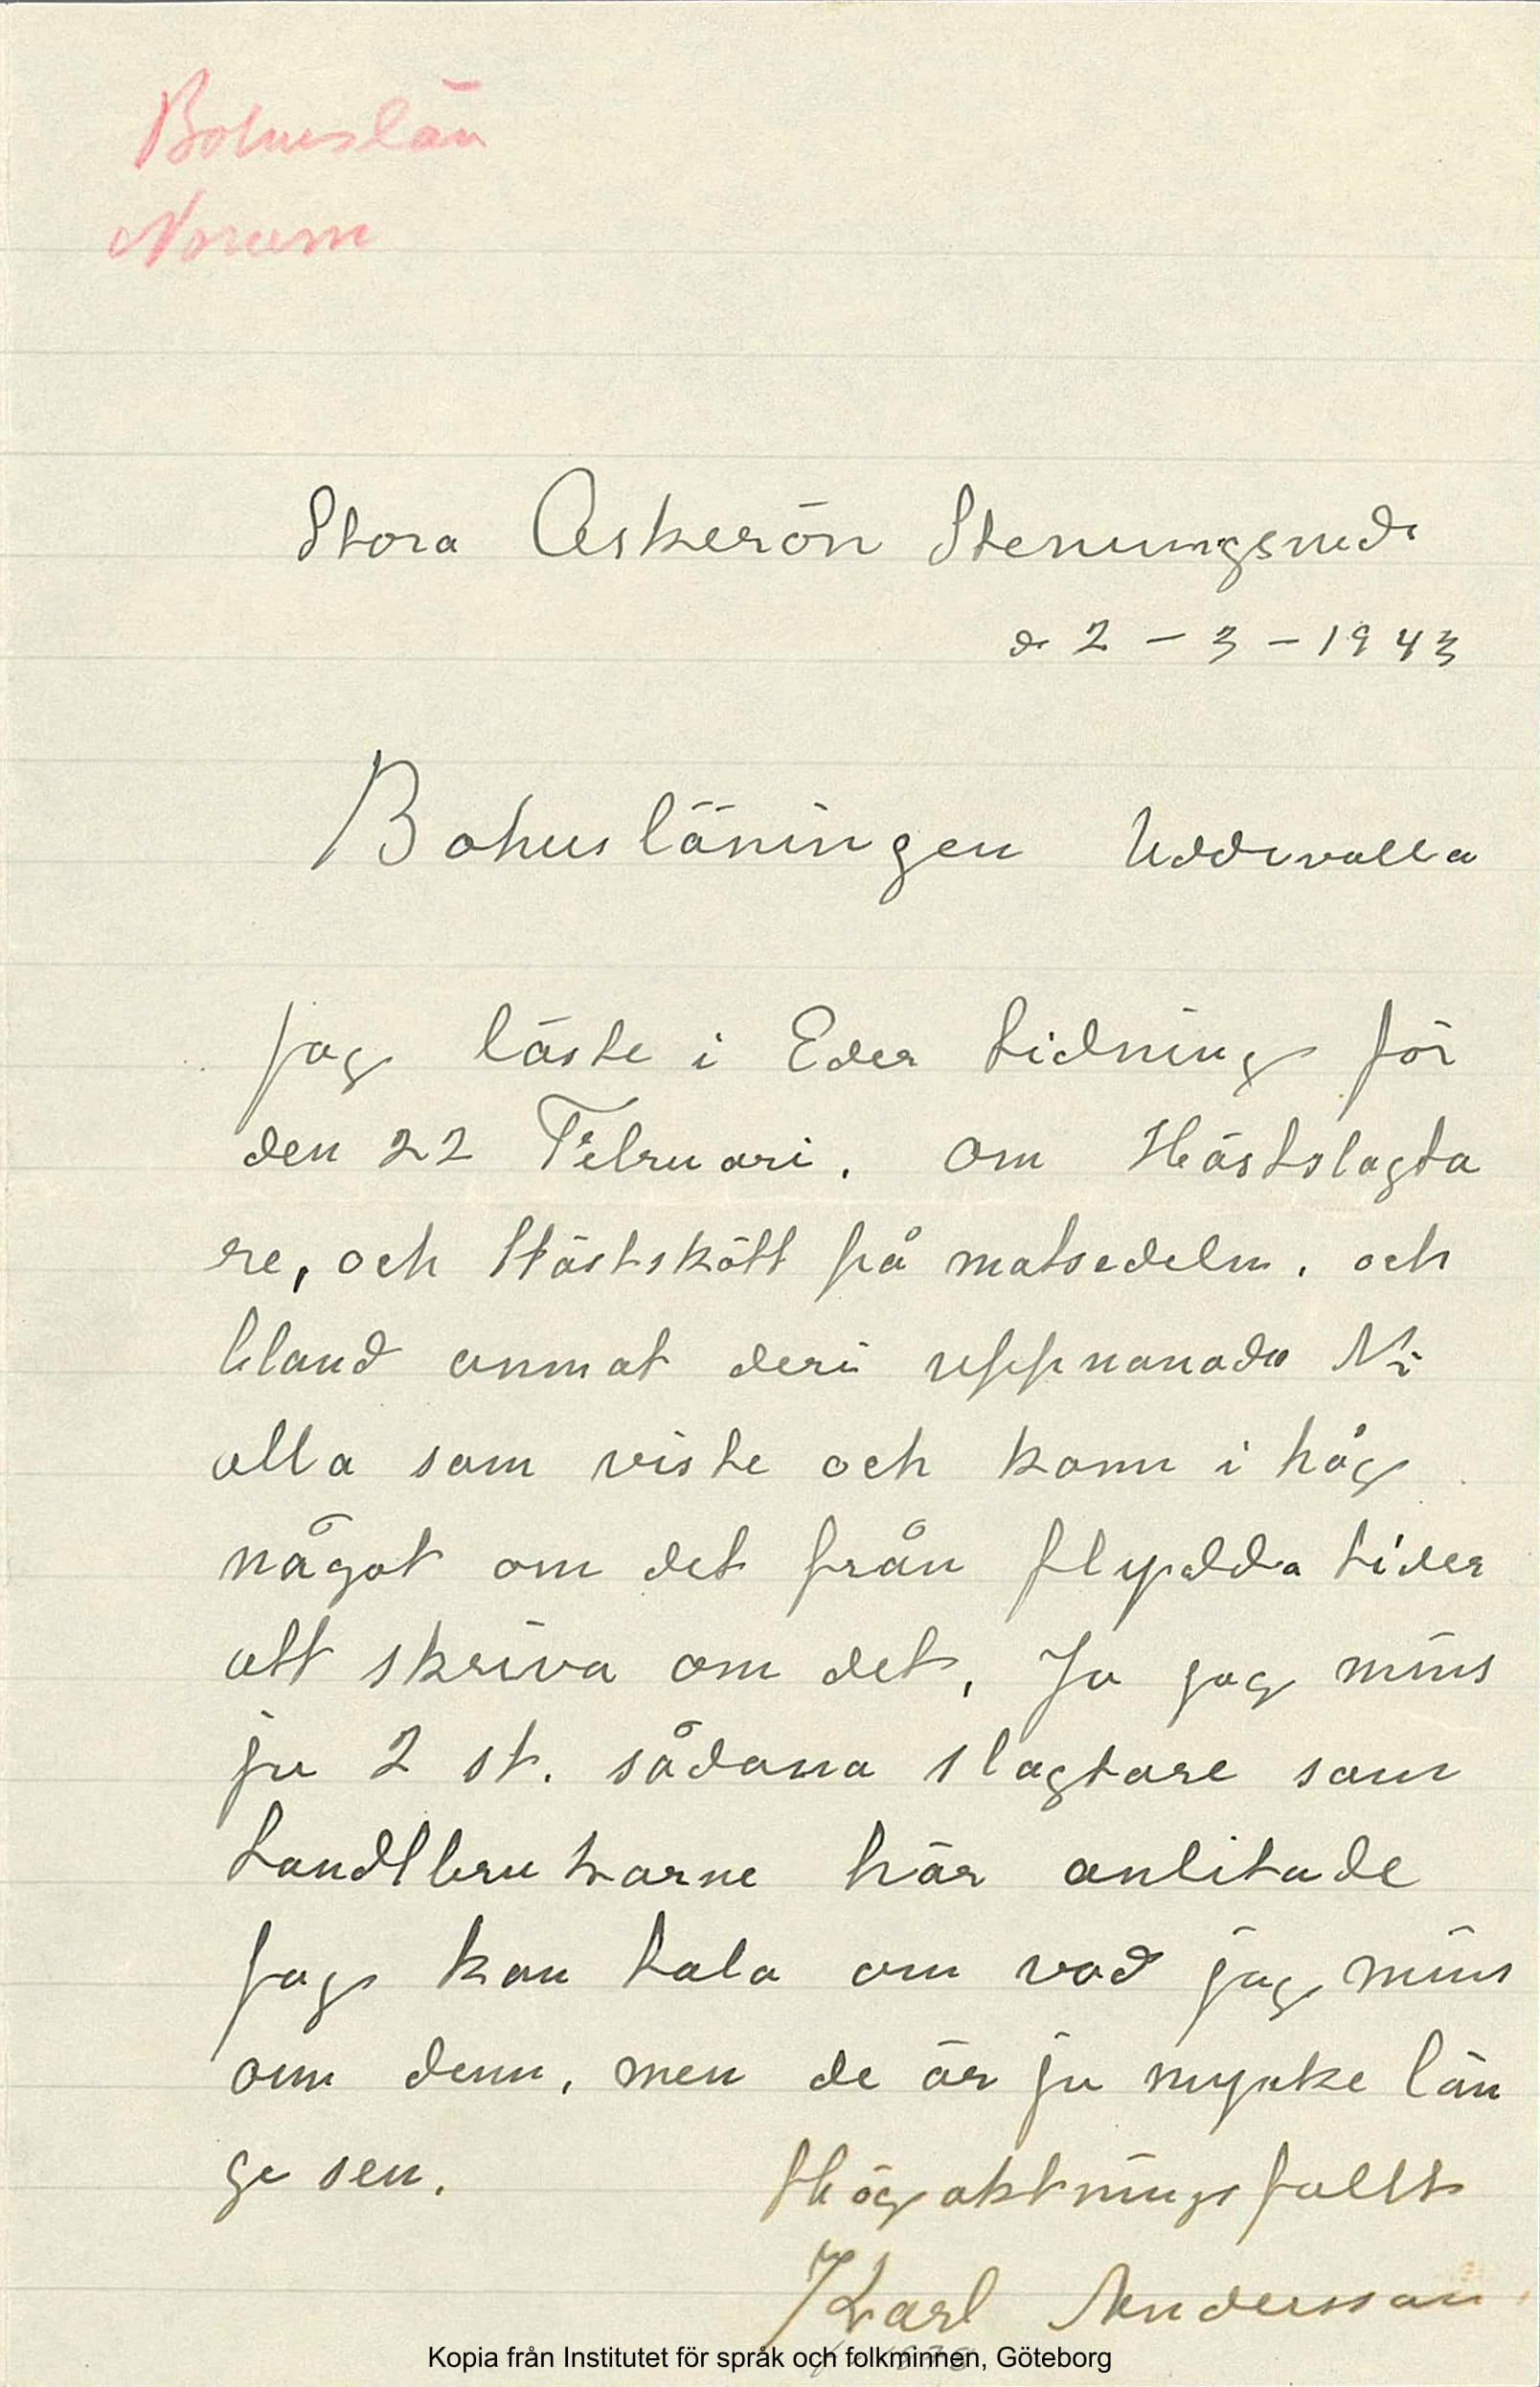 Bohuslän
Norum
Stora Askerön Stenungsund
d 2 - 3 - 1943
Bohusläningen Uddevalla
Jag läste i Eder tidning för
den 22 Februari. om Hästslagta
re, och Hästskött på matsedeln. och
bland anmat deri uppmanade Ni
alla som viste och komm i håg
något om det från flydda tider
att skriva om det, Ja jag mins
ju 2 st. sådana slagtare som
Landtbrukarne här anlitade
Jag kan tala om vad jag mins
om denn, men de är ju mycke län
ge sen.
Högaktningsfullt
Karl Andersson
Kopia från Institutet för språk och folkminnen, Göteborg